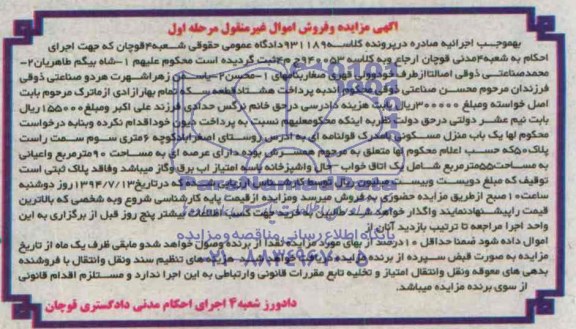 آگهی مزایده وفروش اموال غیرمنقول مرحله اول
بهموجب اجرائیه صادره درپرونده کلاسه ۹۳۱۱۸۹دادگاه عمومی حقوقی شعبه۴قوچان که جهت اجرای
احکام به شعبه۴مدنی قوچان ارجاع وبه کلاسه ۹۴۰۰۵۳م۴ثبت گردیده است محکوم علیهم ۱-شاه بیگم طاهریان۲-
محمدصناعتی ذوقی اصالتاازطرف خودوولی قهری صغاربنامهای ۱-محسن۲-یاسمن زهراشهرت هردو صناعتی ذوقی
فرزندان مرحوم محسن صناعتی ذوقی محکوم اندبه پرداخت هشتادقطعه سکه تمام بهارازادی ازماترک مرحوم بابت
اصل خواسته ومبلغ ۳۰۰۰۰۰۰ریال بابت هزینه دادرسی درحق خانم نرگس حدادی فرزند علی اکبر ومبلغ ریال
بابت نیم عشر دولتی درحق دولت نظربه اینکه محکومعلیهم نسبت به پرداخت دیون خوداقدام نکرده وبنابه درخواست
محکوم لها یک باب منزل مسکونی بامدرک قولنامه ای به ادرس روستای اصغرابادکوچه ۶متری سوم سمت راست
پلاک۵۰که حسب اعلام محکوم لها متعلق به مرحوم همسرش بوده دارای عرصه ای به مساحت ۹۰مترمربع واعیانی
به مساحت۵۵مترمربع شامل یک اتاق خواب-هال واشپزخانه باسه امتیاز اب برق وگاز میباشد وفاقد پلاک ثبتی است
توقیف که مبلغ دویست وبیست میلیون ریال توسط کارشناس ارزیابی شده که درتاریخ۱۳۹۴/۷/۱۳روز دوشنبه
ساعت۱۰صبح ازطریق مزایده حضوری به فروش میرسد ومزایده ازقیمت پایه کارشناسی شروع وبه شخصی که بالاترین
قیمت راپیشنهادنمایند واگذار خواهد شد طالبین به خرید جهت کسب اطلاعات بیشتر پنج روز قبل از برگزاری به این
واحد اجرا مراجعه تا ترتیب بازدید آنان از
اموال داده شود ضمنا حداقل ۱۰درصد از بهای مورد مزایده نقدا از برنده وصول خواهد شدو مابقی ظرف یک ماه از تاریخ
مزایده به صورت قبض سپرده از برنده مزایده هزینه های تنظیم سند ونقل وانتقال با فروشنده
بدهی های معوقه ونقل وانتقال امتیاز و تخلیه تابع مقررات قانونی وارتباطی به این اجرا ندارد و مستلزم اقدام قانونی
از سوی برنده مزایده میباشد.
دادورز شعبه۴ اجرای احکام مدنی دادگستری قوچان
پایگاه اطلاع رسانی مناقصه ومزایده